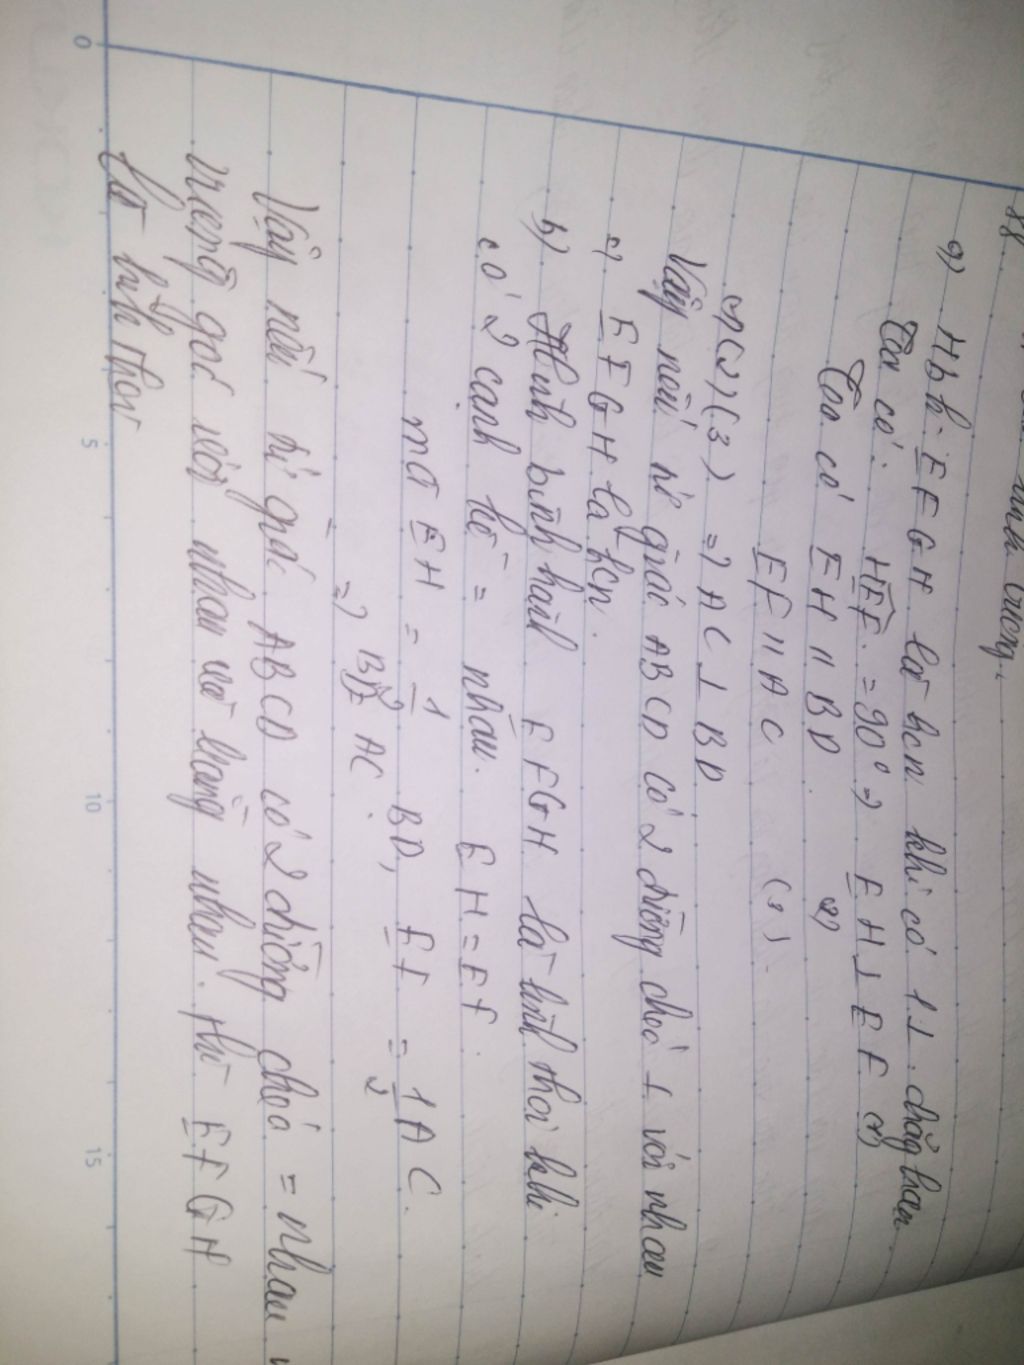 88
hình vuông.
a) Hbh. EFGH là hcn khi có 1⊥. chẳng hạn.
Ta có: HEF = 90° => EH ⊥ EF (1)
Ta có EH // BD. 2)
EF // AC (3).
(1)(2)(3) => AC ⊥ BD
Vậy nếu tứ giác ABCD có 2 đường chéo ⊥ với nhau
=> EFGH là hcn.
b) Hình bình hành EFGH là hình thoi khi
có 2 cạnh kề = nhau. EH = EF.
mà EH = 1/2 BD, EF = 1/2 AC.
=> BD = AC.
Vậy nếu tứ giác ABCD có 2 đường chéo = nhau
vuông góc với nhau và bằng nhau. thì EFGH
là hình thoi
0
5
10
15